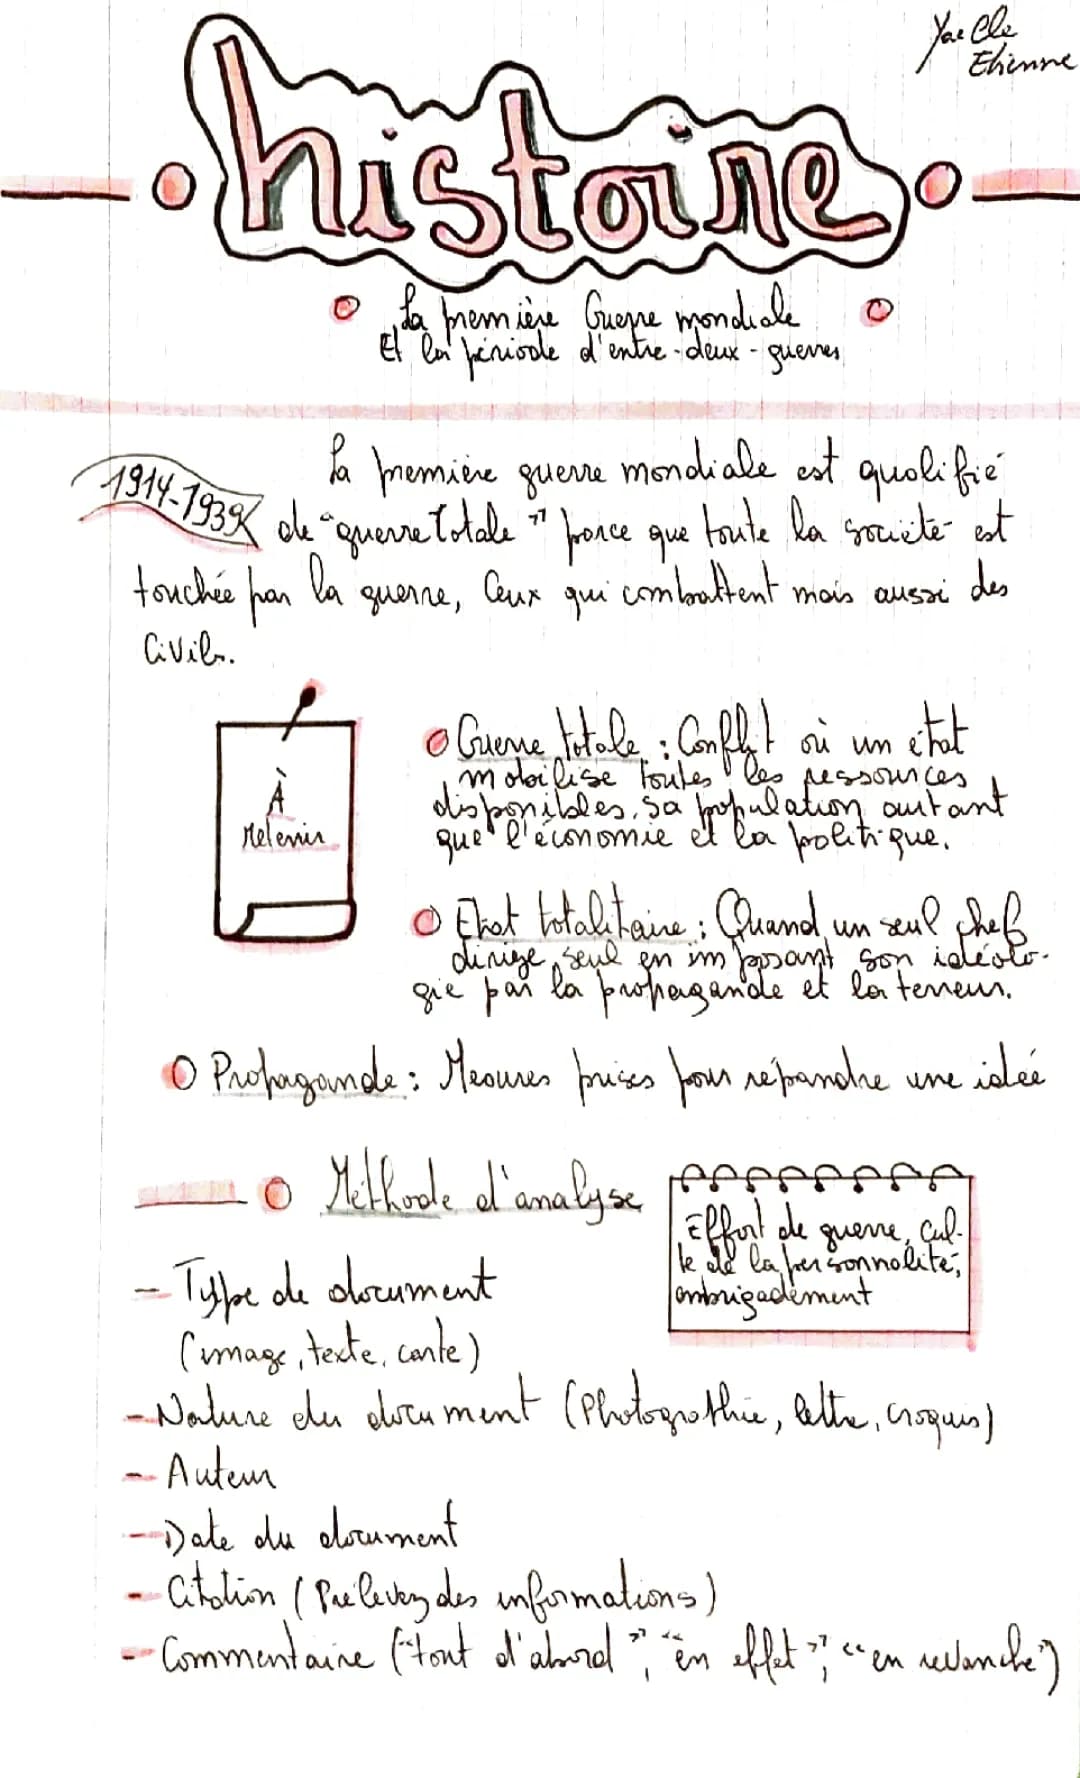 Yae Cle
Etienne
histoire
La première Guerre mondiale
Et la période d'entre-deux-guerres
1914-1939
La première guerre mondiale est qualifié
de "guerre Totale" parce que toute la société est
touchée par la guerre, Ceux qui combattent mais aussi des
Civils.
À
retenir
Guerre totale : Conflit où un état
mobilise toutes les ressources
disponibles, sa population autant
que l'économie et la politique.
Etat totalitaire : Quand un seul chef
dirige seul en imposant son idéolo-
gie par la propagande et la terreur.
Propagande : Mesures prises pour répandre une idée
Méthode d'analyse
Effort de guerre, cul-
te de la personnalité,
embrigadement
- Type de document
(image, texte, carte)
- Nature du document (Photographie, lettre, croquis)
- Auteur
- Date du document
- Citation (Prélevez des informations)
- Commentaire ("tout d'abord", "en effet", "en revanche")